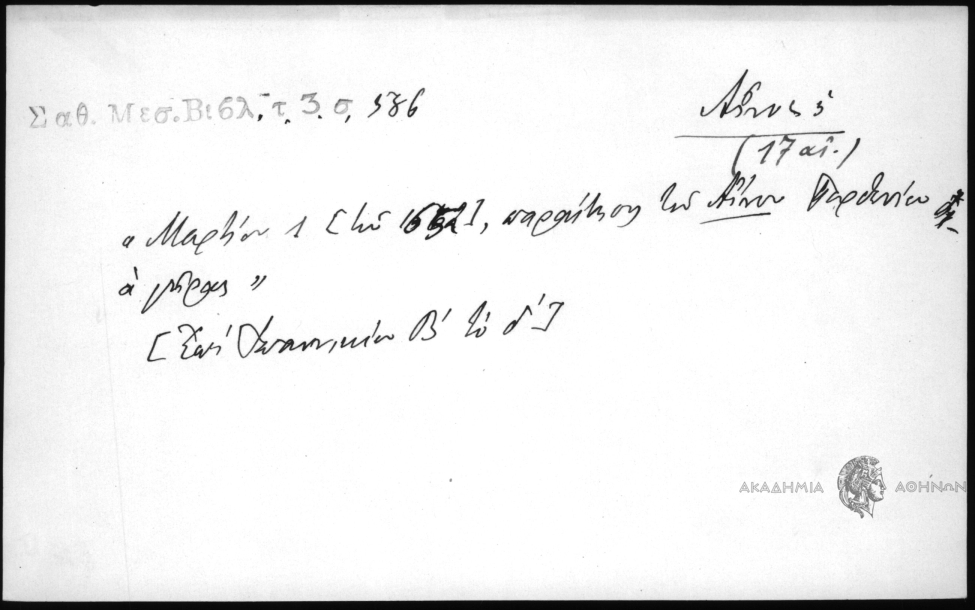 Σαθ. Μεσ. Βιβλ. τ. 3. σ. 586
Αἶνος ἡ
(17 αἰ.)
„ Μαρτίου 1 [τοῦ 1652], παραίτησις τοῦ Αἴνου Παρθενίου
ἀ γήρως "
[Ἐπὶ Ἰωαννικίου Β' τὸ δ']
ΑΚΑΔΗΜΙΑ ΑΘΗΝΩΝ